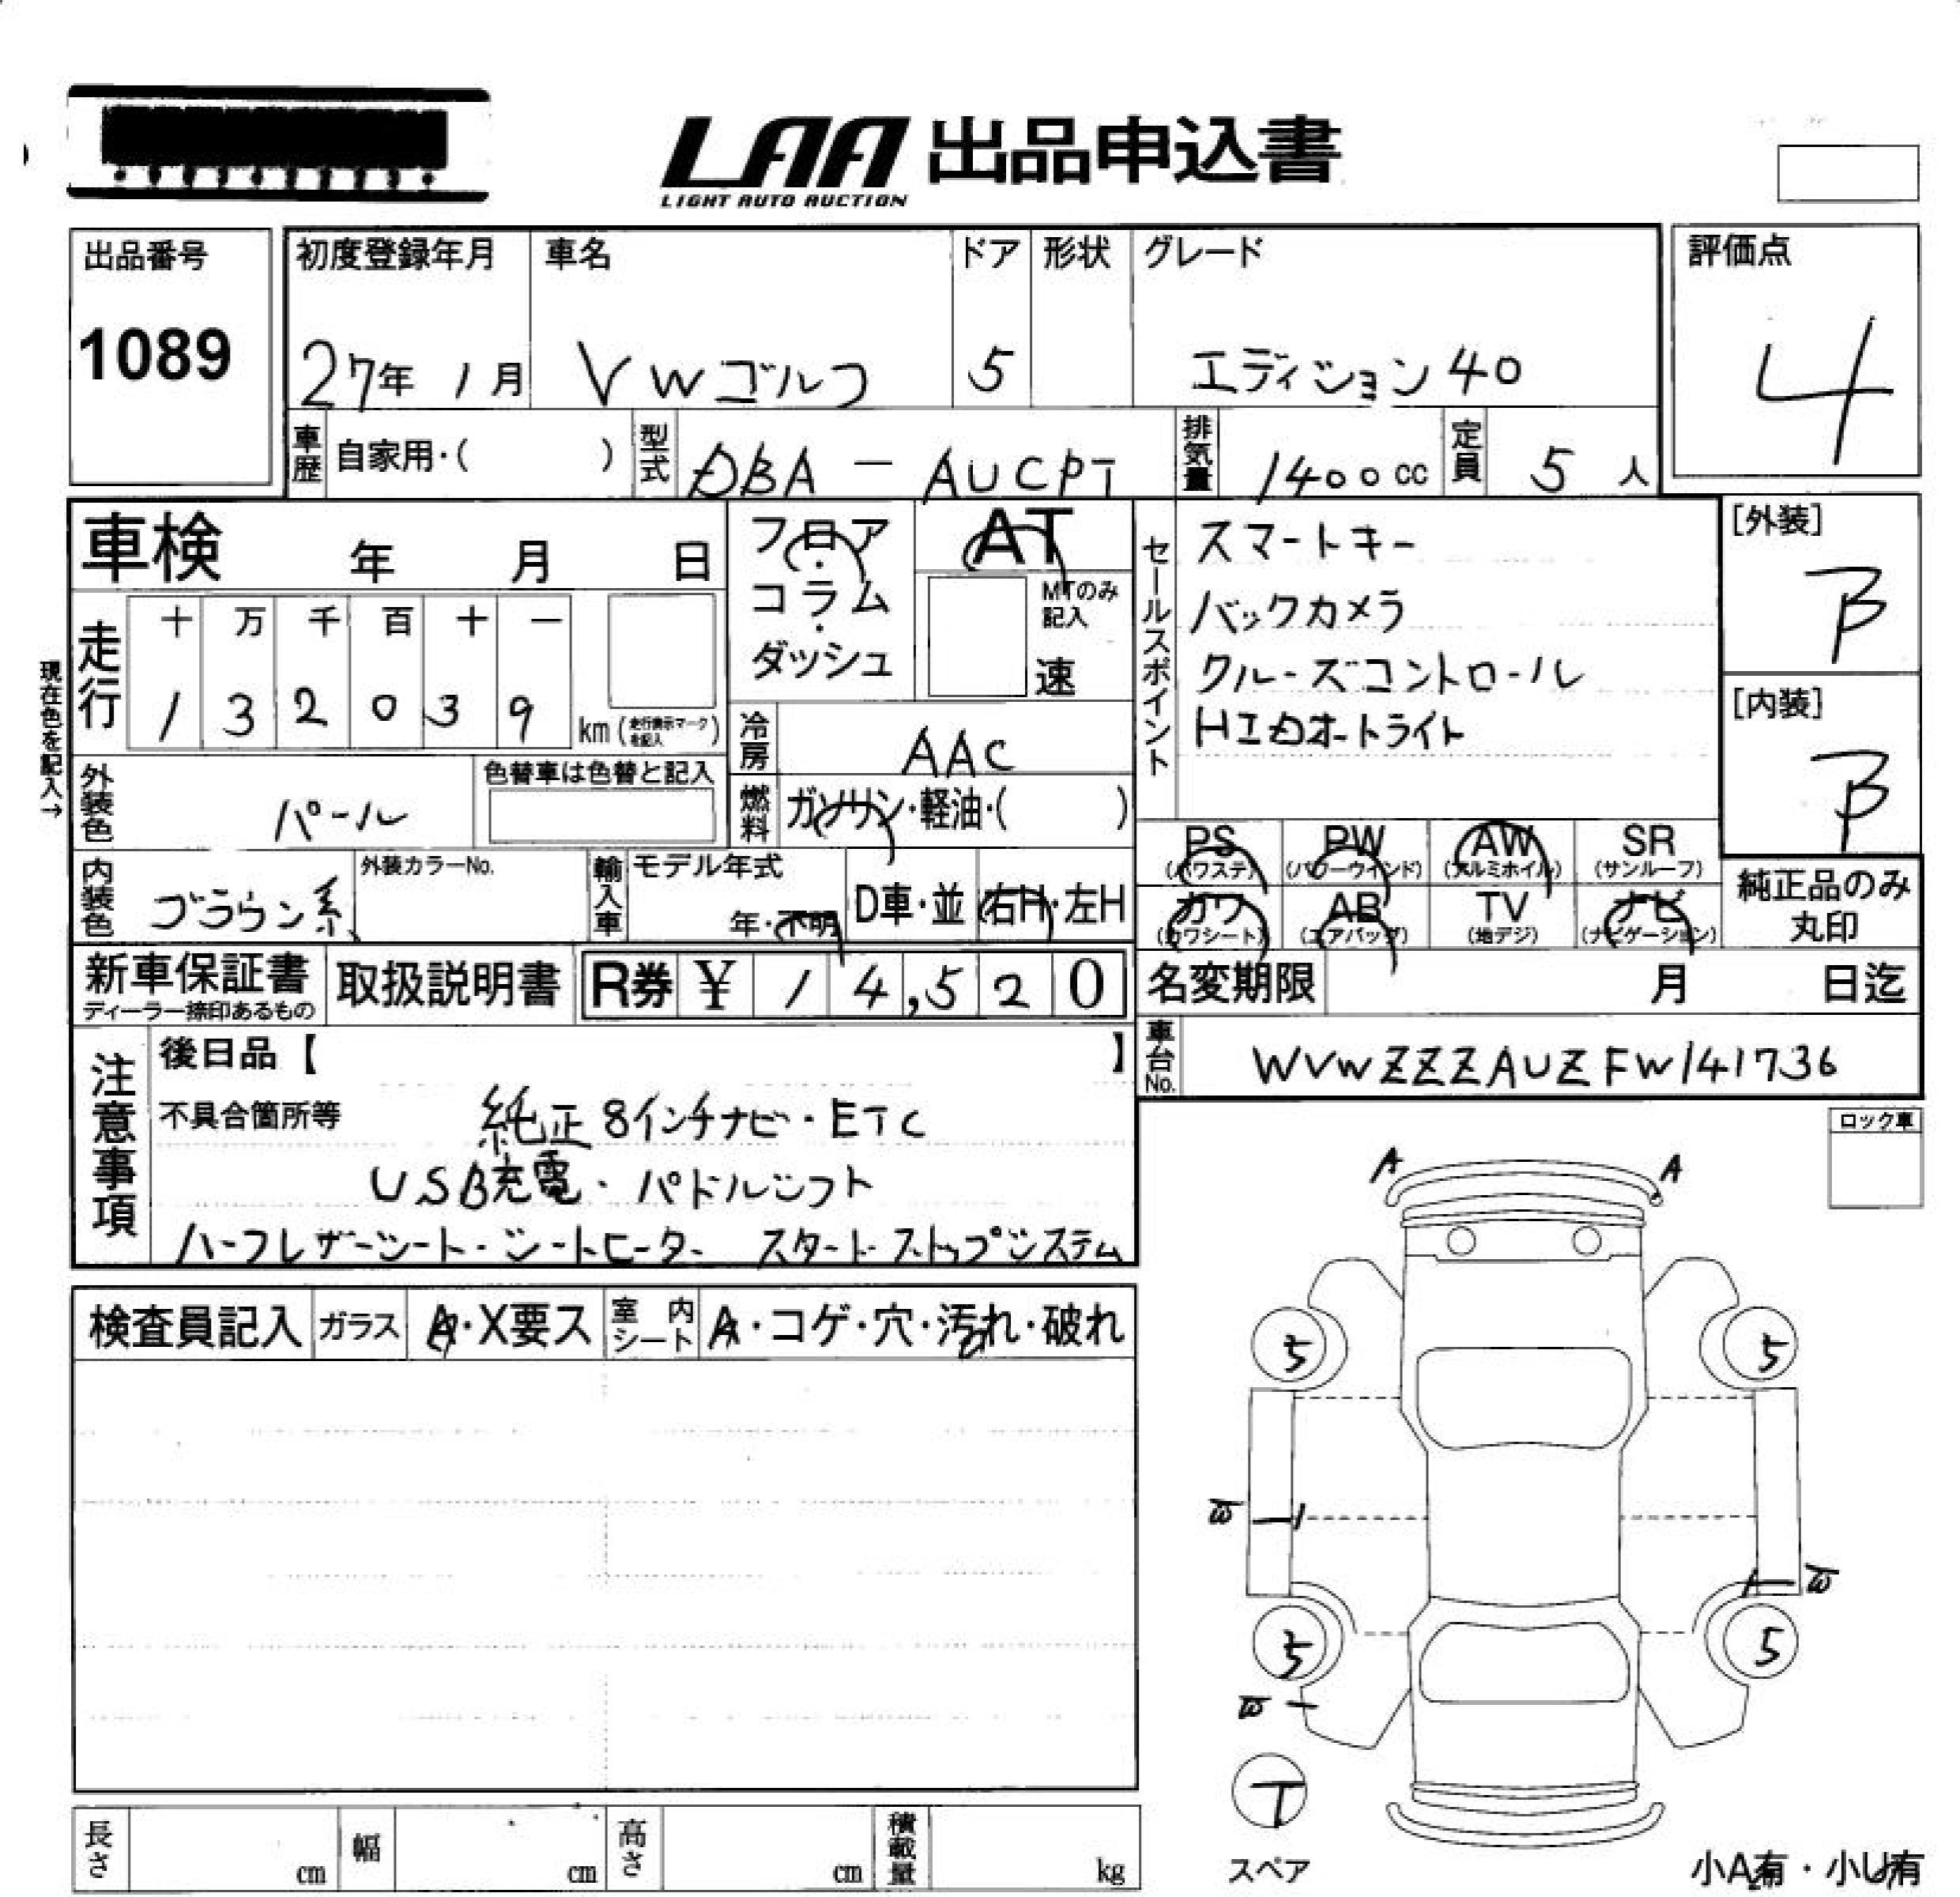 LAA 出品申込書
LIGHT AUTO AUCTION
出品番号
1089
初度登録年月
27年 1月
車名
VWゴルフ
ドア
5
形状
グレード
エディション40
評価点
4
車歴
自家用・( )
型式
DBA-AUCPT
排気量
1400cc
定員
5人
車検 年 月 日
フロア
・
コラム
・
ダッシュ
AT
MTのみ
記入
速
セールスポイント
スマートキー
バックカメラ
クルーズコントロール
HIDオートライト
[外装]
B
[内装]
B
現在色を記入→
走行
十 万 千 百 十 一
1 3 2 0 3 9
km(走行表示マークを記入)
冷房
AAC
外装色
パール
色替車は色替と記入
燃料
ガソリン・軽油・( )
PS
(パワステ)
PW
(パワーウインド)
AW
(アルミホイル)
SR
(サンルーフ)
内装色
ブラウン系
外装カラーNo.
輸入車
モデル年式
年・不明
D車・並
右H・左H
カワ
(カワシート)
AB
(エアバッグ)
TV
(地デジ)
ナビ
(ナビゲーション)
純正品のみ
丸印
新車保証書
ディーラー捺印あるもの
取扱説明書
R券 ¥ 14,520
名変期限 月 日迄
車台No.
WVWZZZAUZFW141736
注意事項
後日品【 】
不具合箇所等
純正8インチナビ・ETC
USB充電・パドルシフト
ハーフレザーシート・シートヒーター スタートストップシステム
ロック車
検査員記入
ガラス
A・X要ス
室内シート
A・コゲ・穴・汚れ・破れ
A A
5 5
W
W
5 5
W
T
スペア
小A有・小U有
長さ cm
幅 cm
高さ cm
積載量 kg